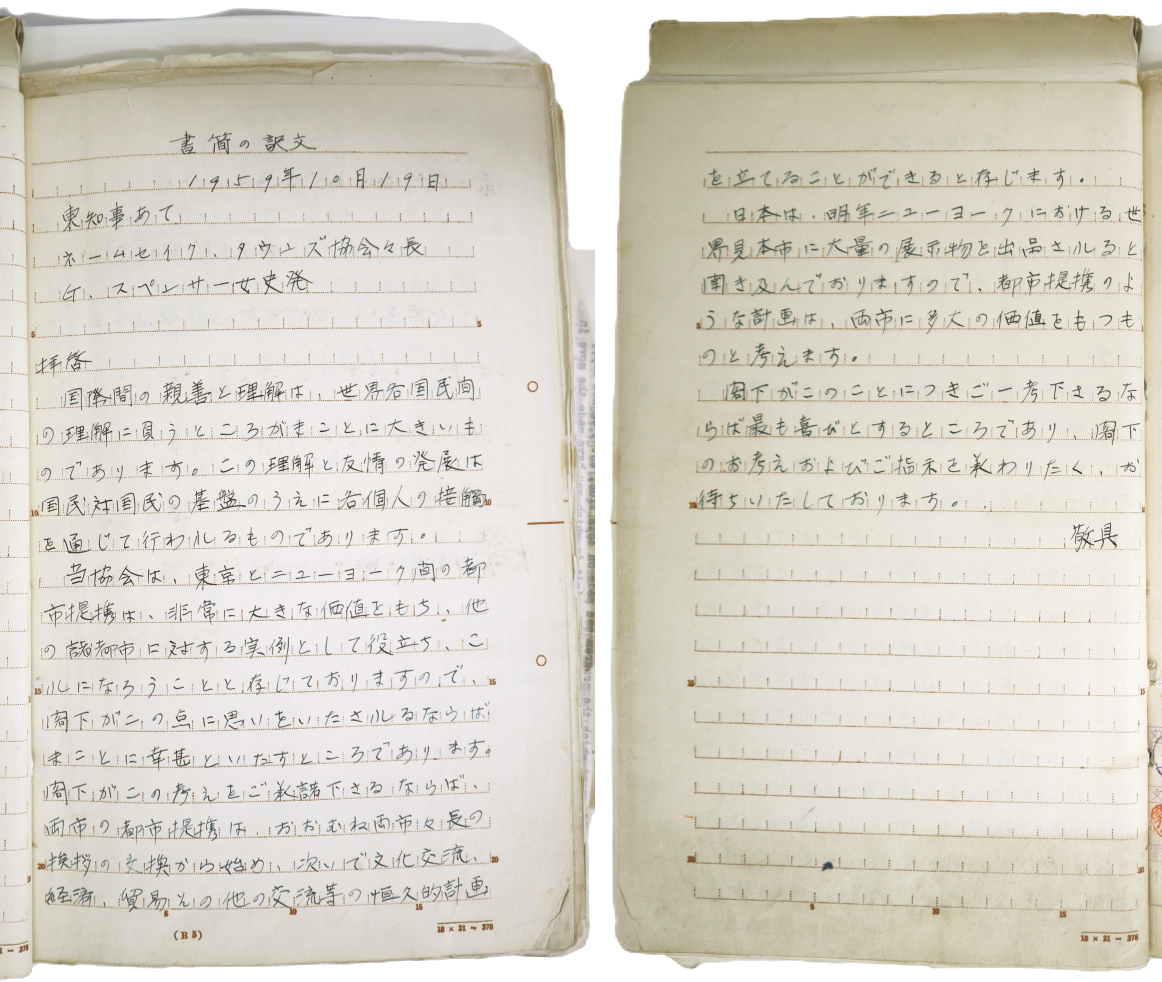 書簡の訳文
1959年10月19日
東知事あて
ネームセイク、タウンズ協会々長
ケ、スペンサー女史発
拝啓
国際間の親善と理解は、世界各国民間
の理解に負うところがまことに大きいも
のであります。この理解と友情の発展は
国民対国民の基盤のうえに各個人の接触
を通じて行われるものであります。
当協会は、東京とニューヨーク間の都
市提携は、非常に大きな価値をもち、他
の諸都市に対する実例として役立ち、こ
れになろうことと存じておりますので、
閣下がこの点に思いをいたされるならば
まことに幸甚といたすところであります。
閣下がこの考えをご承諾下さるならば、
両市の都市提携は、おおむね両市々長の
挨拶の交換から始め、次いで文化交流、
経済、貿易その他の交流等の恒久的計画
5
10
15
20
5
10
15
20
5
10
15
(B5)
18×21=378
を立てることができると存じます。
日本は、明年ニューヨークにおける世
界見本市に大量の展示物を出品されると
聞き及んでおりますので、都市提携のよ
うな計画は、両市に多大の価値をもつも
のと考えます。
閣下がこのことにつきご一考下さるな
らば最も喜びとするところであり、閣下
のお考えおよびご指示を承わりたく、お
待ちいたしております。
敬具
5
10
15
20
15
20
5
10
15
18×21=378